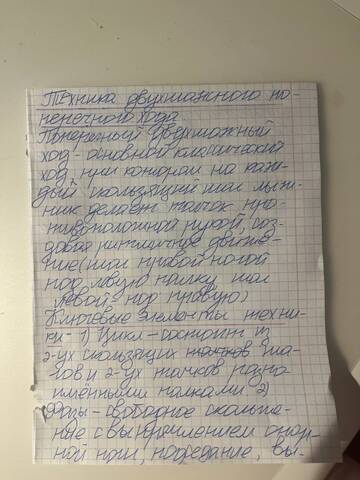 Техника двухшажного по-
пенечного хода.
Поперенный двухшажный
ход - основной классический
ход, при котором на каж-
дый скользящий шаг лыж-
ник делает толчок про-
тивоположной рукой, соз-
давая ритмичное движе-
ние (шаг правой ногой
под левую палку, шаг
левой - под правую)
Ключевые элементы техни-
ки - 1) Цикл - состоит из
2-ух скользящих шa-
гов и 2-ух толчков разно
имёнными палками 2)
Фазы - свободное скольже-
ние с выпрямлением опор-
ной ноги, подседание, вы-